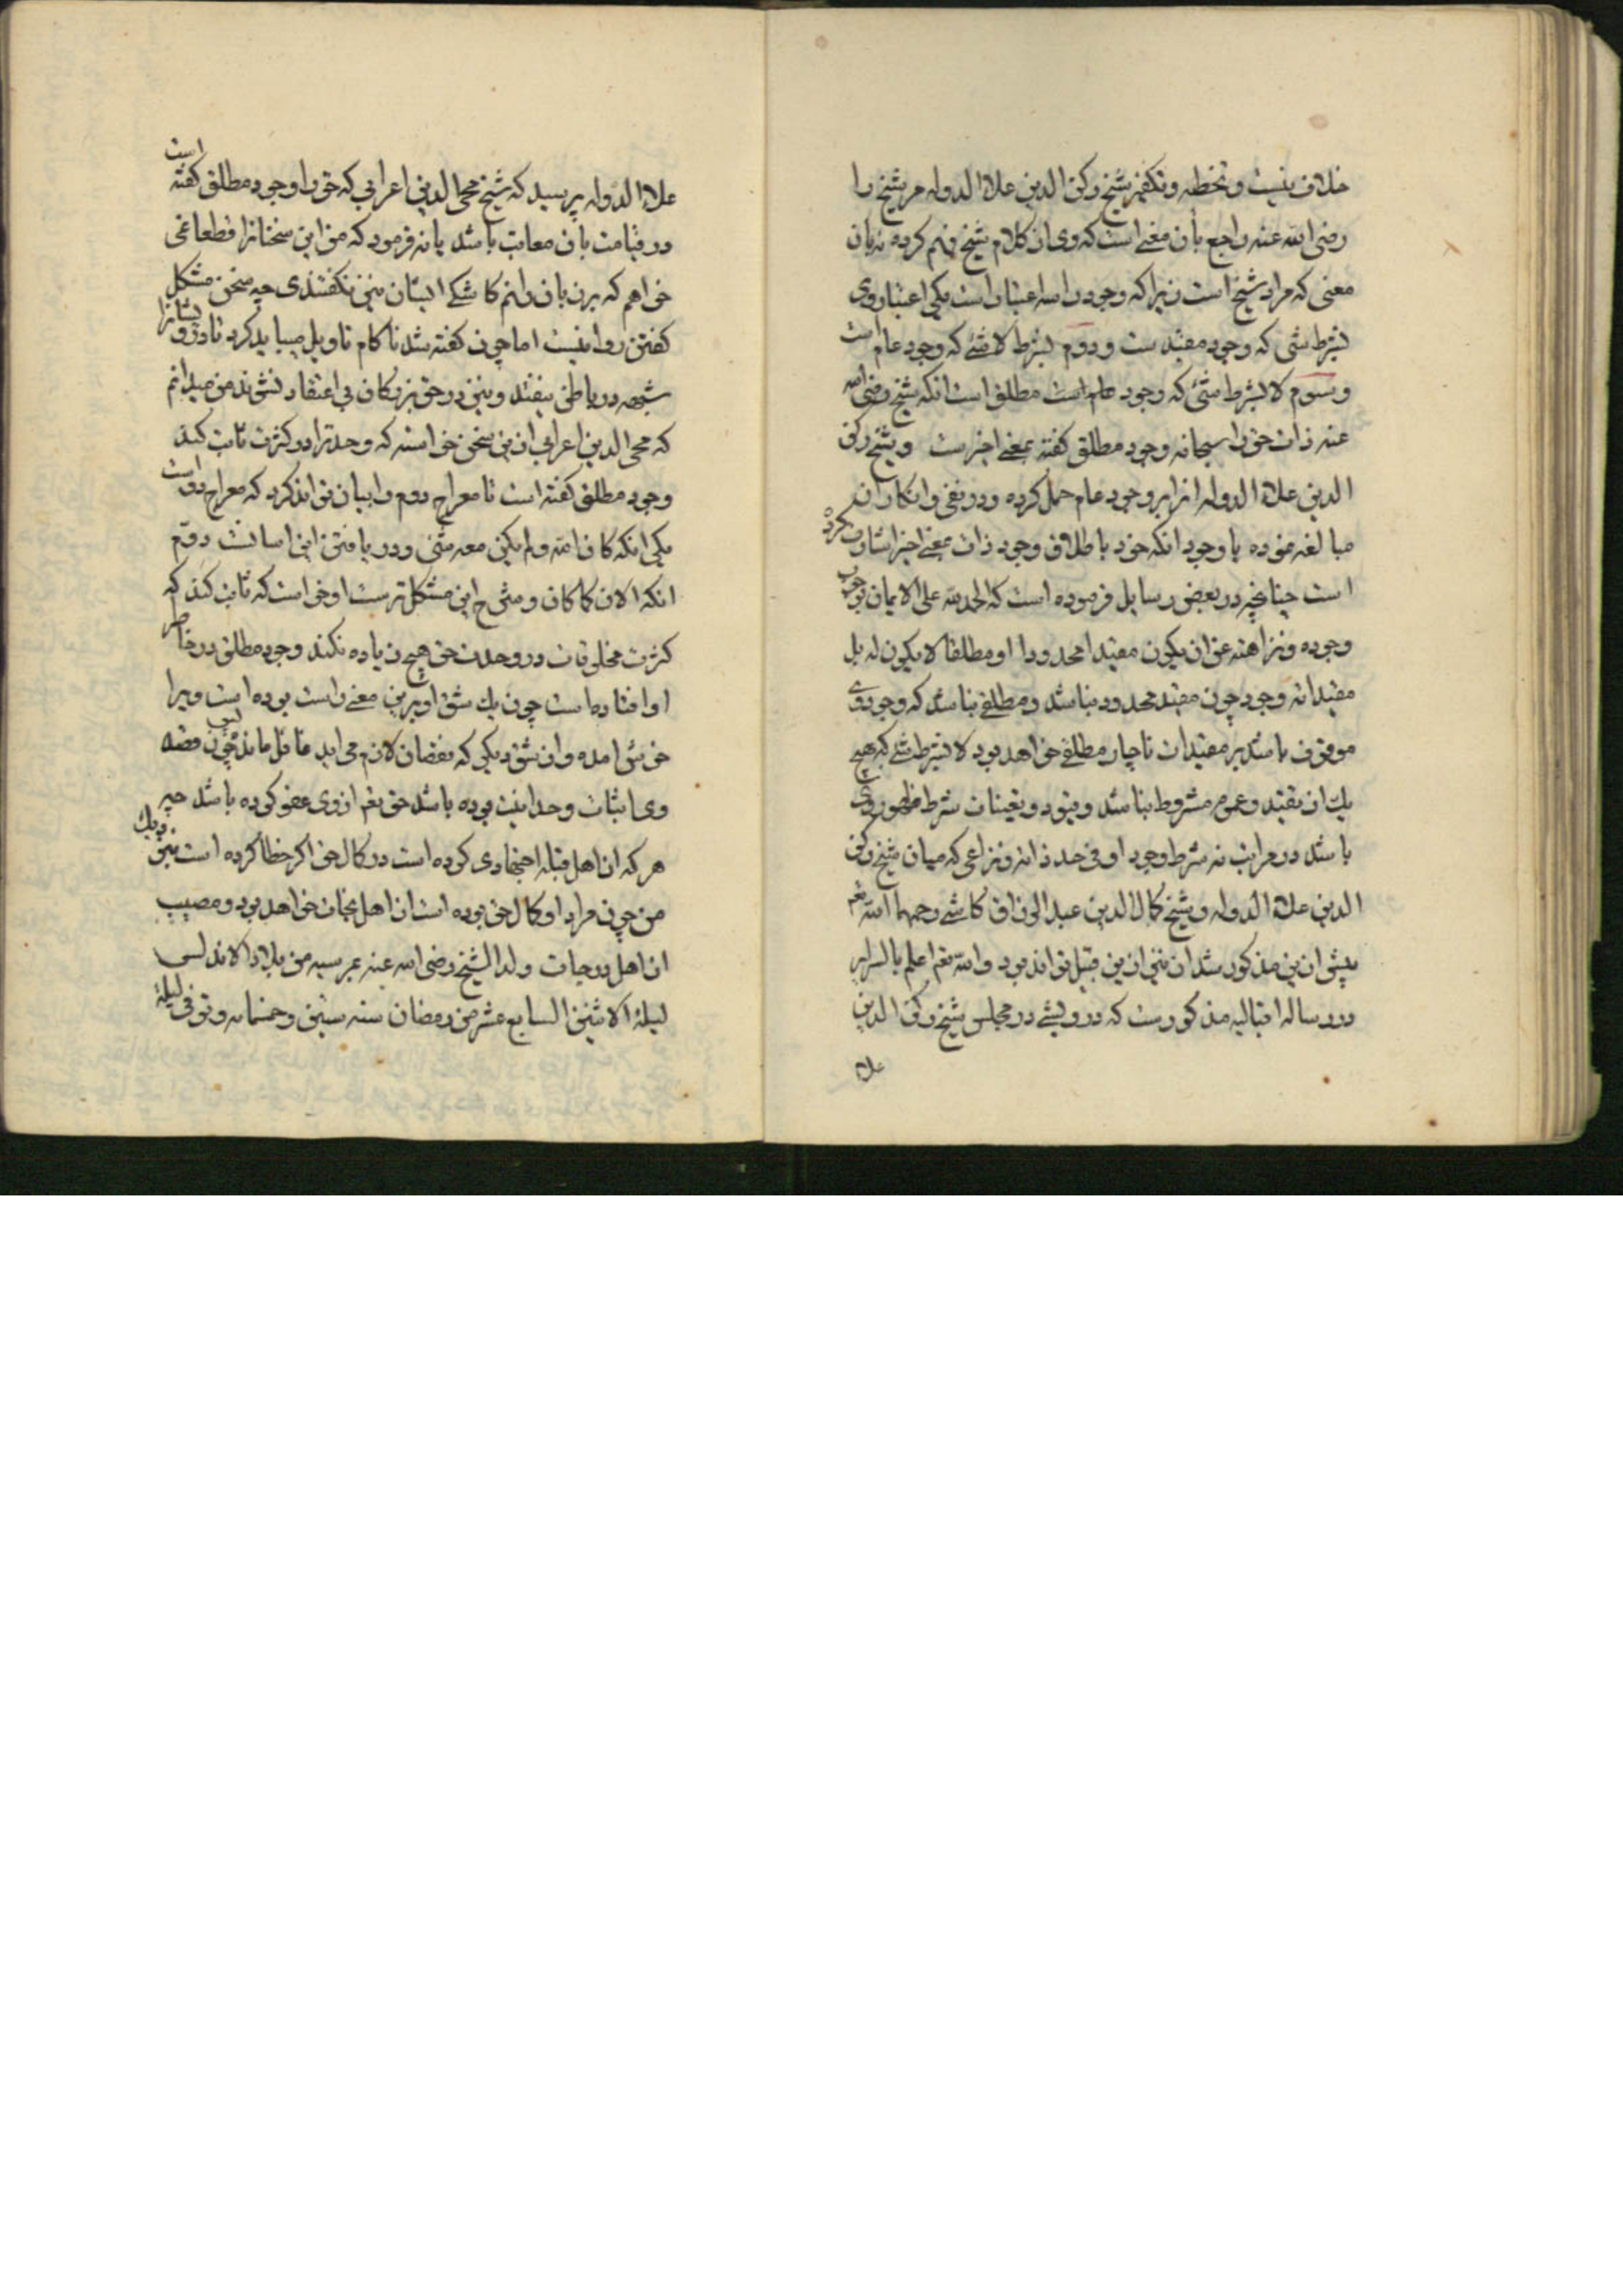 خلاف نیست و تخطئه و تکفیر شیخ رکن الدین علاء الدوله مر شیخ را
رضی الله عنه راجع بآن معنی است که وی از کلام شیخ فهم کرده نه بآن
معنی که مراد شیخ است زیرا که وجود را سه اعتبار است یکی اعتبار وی
بشرط شی که وجود مقید ست و دوم بشرط لا شئ که وجود عام است
و سوم لا بشرط شئ که وجود مطلق است انکه شیخ رضی الله
عنه ذات حق را سبحانه وجود مطلق کفته بمعنی اخیرست و شیخ رکن
الدین علاء الدوله انرا بر وجود عام حمل کرده و در نفی و انکار ان
مبالغه نموده با وجود انکه خود باطلاق وجود ذات معنی اخیر اشارت کرده
است چنانچه در بعض رسایل فرموده است که الحمد لله علی الایمان بوجوب
وجوده و نزاهته عن ان یکون مقیدا محدودا او مطلقا لا یکون له بل
مقیداته وجود چون مقید محدود نباشد و مطلقی نباشد که وجود وی
موقوف باشد بر مقیدات ناچار مطلقی خواهد بود لا بشرط شئ که هیچ
یک از تقید و عموم مشروط نباشد و قیود و تعینات شرط ظهور وی
باشد در مراتب نه شرط وجود او فی حد ذاته و نزاعی که میان شیخ رکن
الدین علاء الدوله و شیخ کمال الدین عبد الرزاق کاشی رحمهما الله تعم
پیش ازین مذکور شد ان نیز ازین قبیل تواند بود والله تعم اعلم بالسرایر
در رساله اقبالیه مذکورست که درویشی در مجلس شیخ رکن الدین
علاء
علاء الدوله پرسید که شیخ محی الدین اعرابی که حق را وجود مطلق کفته است
در قیامت بآن معاتب باشد یا نه فرمود که من این سخنانرا قطعا نمی
خواهم که بر زبان رانم کاشکی ایشان نیز نکفتندی چه سخن مشکل
کفتن روا نیست اما چون کفته شد ناکام تاویل میباید کرد تا درویشانرا
شبهه در باطن نیفتد و نیز در حق بزرکان بی اعتقاد نشوند من میدانم
که محی الدین اعرابی ازین سخن خواسته که وحدترا در کثرت ثابت کند
وجود مطلق کفته است تا معراج دوم را بیان تواند کرد که معراج دو است
یکی انکه کان الله و لم یکن معه شئ و دریافتن این اسانست دوم
انکه الان کما کان و شرح این مشکل ترست او خواست که ثابت کند که
کثرت مخلوقات در وحدت حق هیچ زیاده نکند وجود مطلق در خاطر
او افتاده است چون یک شق او برین معنی راست بوده است ویرا
خوش امده و از شق دیکر که نقصان لازم می اید غافل مانده پس چون قصد
وی اثبات وحدانیت بوده باشد حق تعم از وی عفو کرده باشد چه
هر که از اهل قبله اجتهادی کرده است در کمال حق اکر خطا کرده است نزدیک
من چون مراد او کمال حق بوده است از اهل نجات خواهد بود و مصیب
از اهل درجات ولد الشیخ رضی الله عنه بمرسیه من بلاد الاندلس
لیلة الاثنین السابع عشر من رمضان سنه ستین و خمسمایه و توفی لیلة